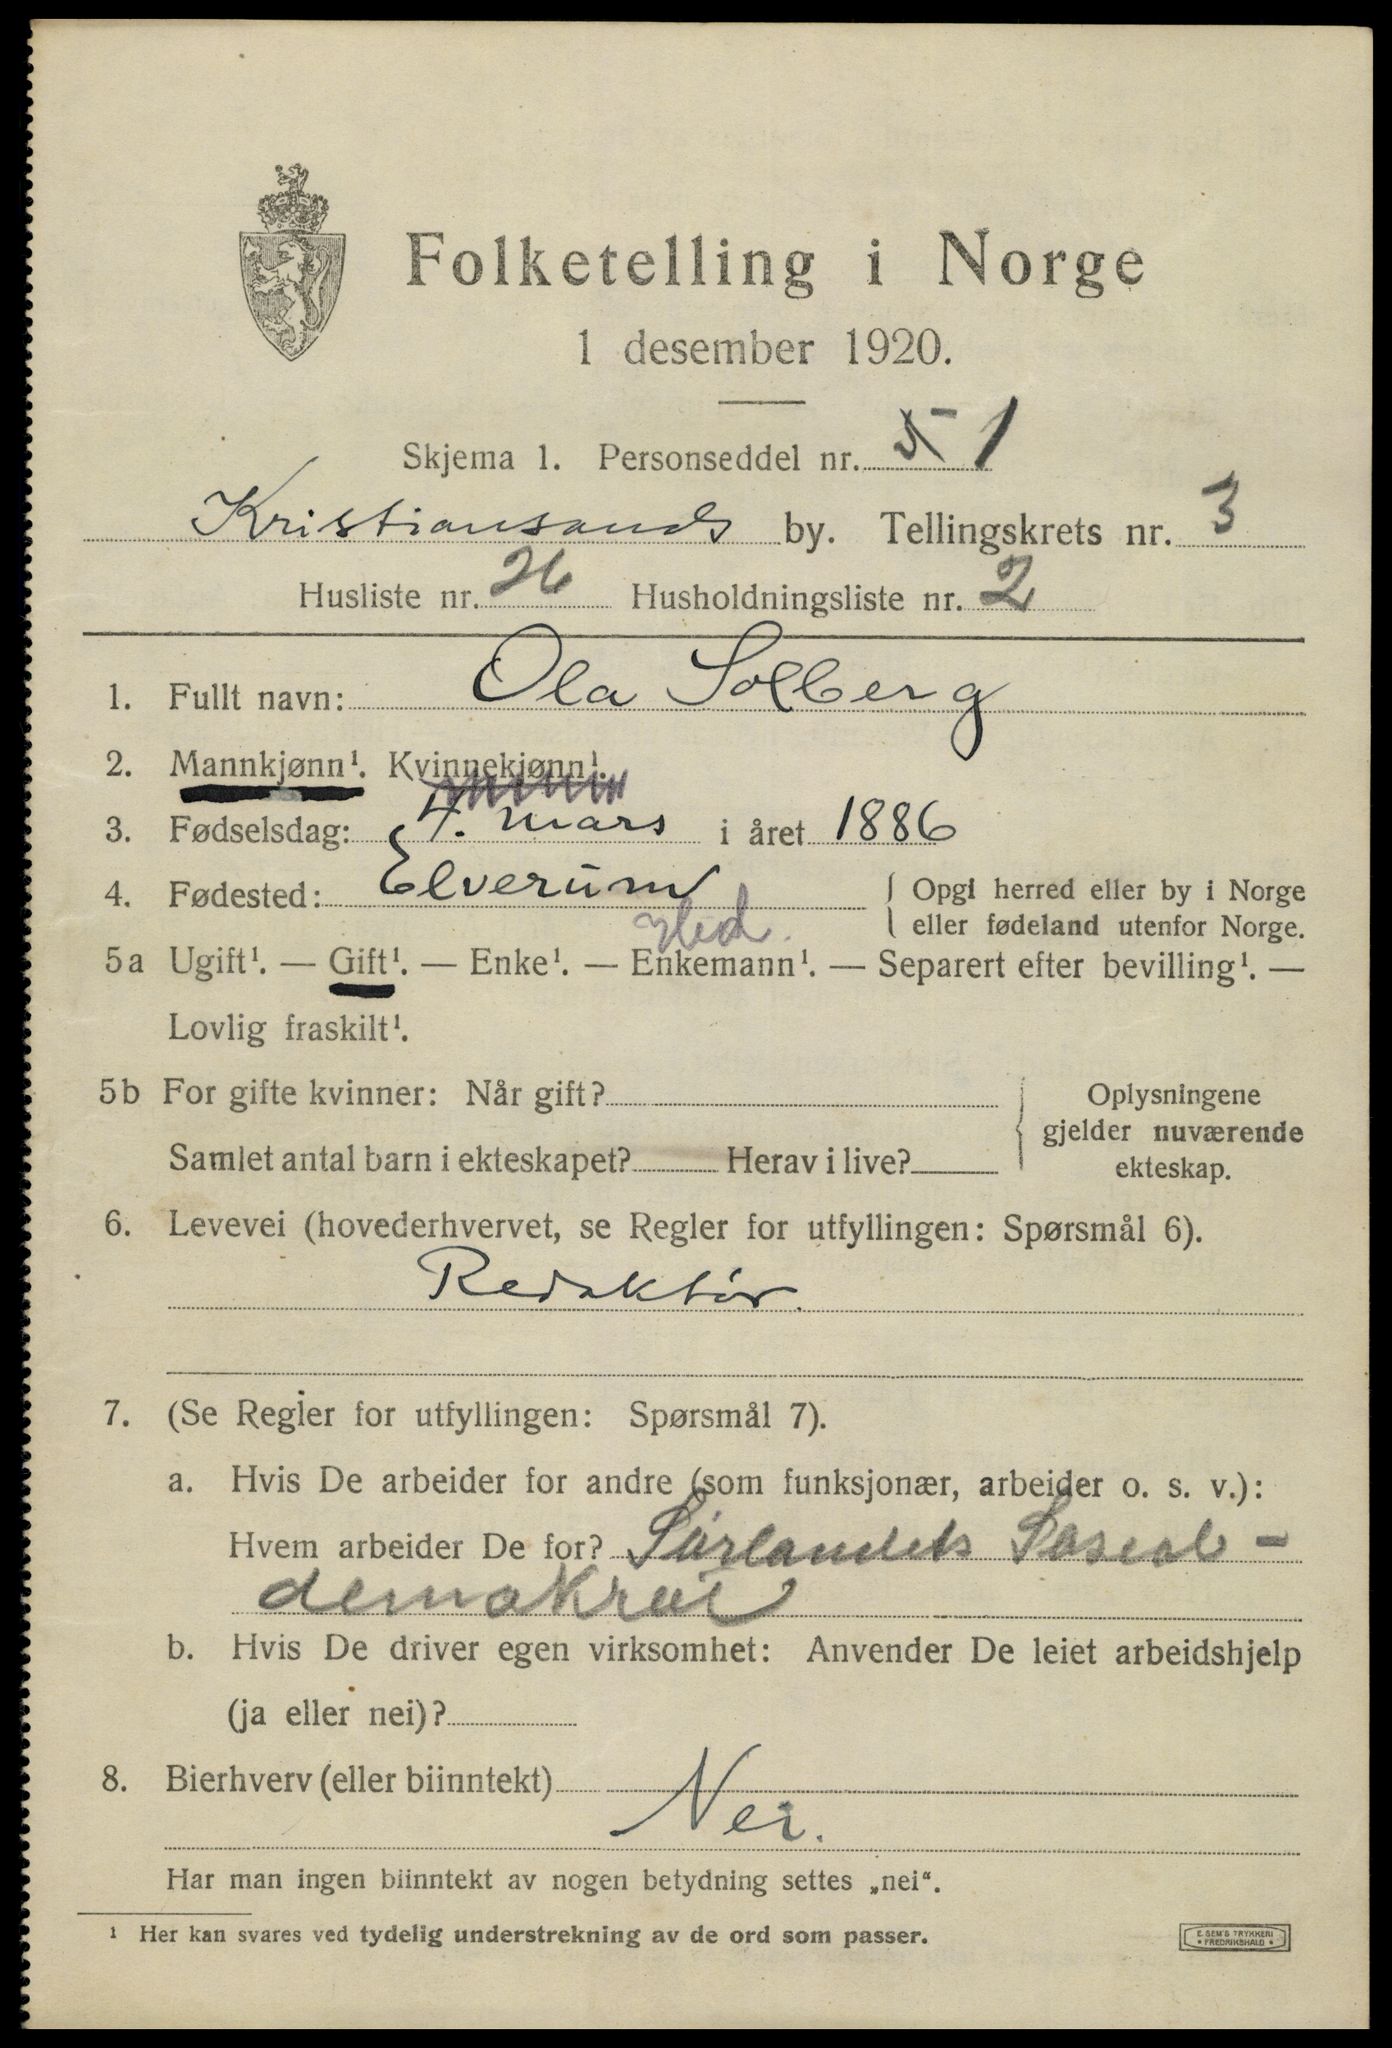 Folketelling i Norge
1 desember 1920.
Skjema 1. Personseddel nr. 5 1
Kristiansands by. Tellingskrets nr. 3
Husliste nr. 26 Husholdningsliste nr. 2
1. Fullt navn: Ola Solberg
2. Mannkjønn¹. Kvinnekjønn¹.
3. Fødselsdag: 4. mars i året 1886
4. Fødested: Elverum { Opgi herred eller by i Norge
eller fødeland utenfor Norge.
Hed.
5a Ugift¹. — Gift¹. — Enke¹. — Enkemann¹. — Separert efter bevilling¹. —
Lovlig fraskilt¹.
5b For gifte kvinner: Når gift? { Oplysningene
gjelder nuværende
Samlet antal barn i ekteskapet? Herav i live? ekteskap.
6. Levevei (hovederhvervet, se Regler for utfyllingen: Spørsmål 6).
Redaktør.
7. (Se Regler for utfyllingen: Spørsmål 7).
a. Hvis De arbeider for andre (som funksjonær, arbeider o. s. v.):
Hvem arbeider De for? Sørlandets Sosial-
demokrat
b. Hvis De driver egen virksomhet: Anvender De leiet arbeidshjelp
(ja eller nei)?
8. Bierhverv (eller biinntekt)
Nei.
Har man ingen biinntekt av nogen betydning settes „nei“.
¹ Her kan svares ved tydelig understrekning av de ord som passer.
E. SEM'S TRYKKERI
* FREDRIKSHALD *